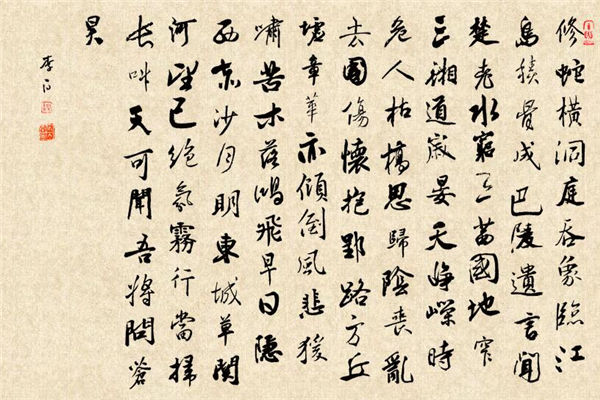 修蛇橫洞庭吞象臨江
島積骨成巴陵遺言聞
楚老水窮三苗國地窄
三湘道歲晏天崢嶸時
危人枯槁思歸陰喪亂
去國傷懷抱郢路方丘
墟章華亦傾倒風悲猨
嘯苦木落鴻飛早日隱
西赤沙月明東城草關
河望已絕氛霧行當掃
長叫天可聞吾將問蒼
昊
李白